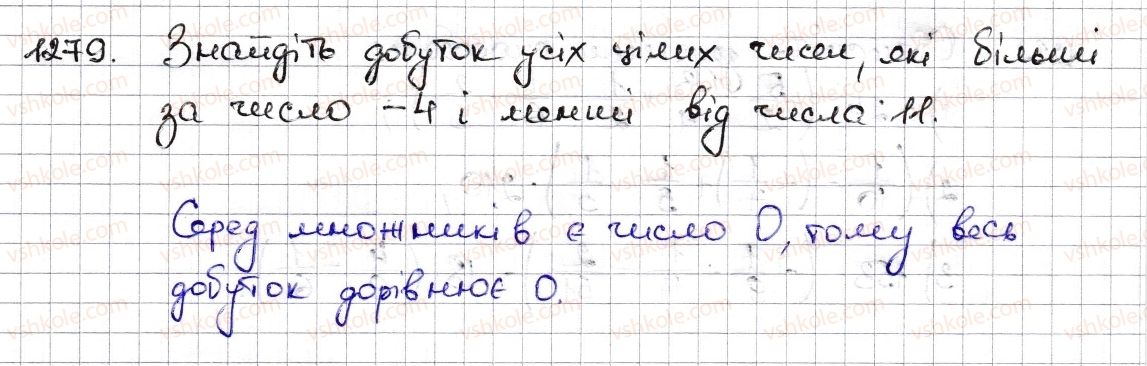 1279. Знайдіть добуток усіх цілих чисел, які більші
за число -4 і менші від числа 11.
Серед множників є число 0, тому весь
добуток дорівнює 0.